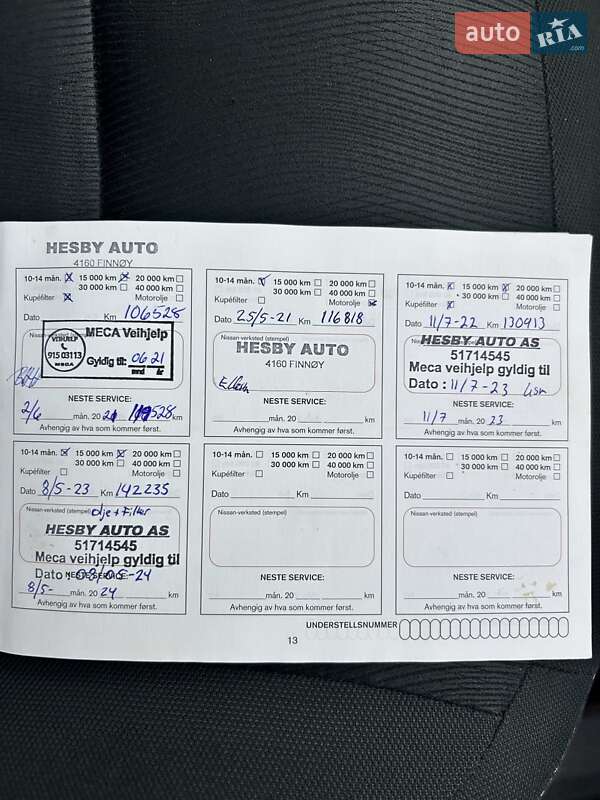 auto RIA.com
HESBY AUTO
4160 FINNØY
10-14 mån. X 15 000 km X 20 000 km
30 000 km 40 000 km
Kupéfilter X Motorolje
Dato Km 106528
Nissan-verksted (stempel)
VEIHJELP
915 03113
MECA
MECA Veihjelp
Gyldig til: 06 21
mnd år
NESTE SERVICE:
2/6 mån. 20 21 119528 km
Avhengig av hva som kommer først.
10-14 mån. 15 000 km 20 000 km
30 000 km 40 000 km
Kupéfilter Motorolje
Dato 25/5-21 Km 116818
Nissan-verksted (stempel)
HESBY AUTO
4160 FINNØY
NESTE SERVICE:
mån. 20 km
Avhengig av hva som kommer først.
10-14 mån. X 15 000 km X 20 000 km
30 000 km 40 000 km
Kupéfilter X Motorolje
Dato 11/7-22 Km 130913
HESBY AUTO AS
51714545
Meca veihjelp gyldig til
Dato : 11/7-23
NESTE SERVICE:
11/7 mån. 20 23 km
Avhengig av hva som kommer først.
10-14 mån. X 15 000 km X 20 000 km
30 000 km 40 000 km
Kupéfilter Motorolje
Dato 8/5-23 Km 142235
Nissan-verksted (stempel) olje + Filter
HESBY AUTO AS
51714545
Meca veihjelp gyldig til
Dato : 08/05-24
NESTE SERVICE:
8/5- mån. 20 24 km
Avhengig av hva som kommer først.
10-14 mån. 15 000 km 20 000 km
30 000 km 40 000 km
Kupéfilter Motorolje
Dato Km
Nissan-verksted (stempel)
NESTE SERVICE:
mån. 20 km
Avhengig av hva som kommer først.
10-14 mån. 15 000 km 20 000 km
30 000 km 40 000 km
Kupéfilter Motorolje
Dato Km
Nissan-verksted (stempel)
NESTE SERVICE:
mån. 20 km
Avhengig av hva som kommer først.
UNDERSTELLSNUMMER
13